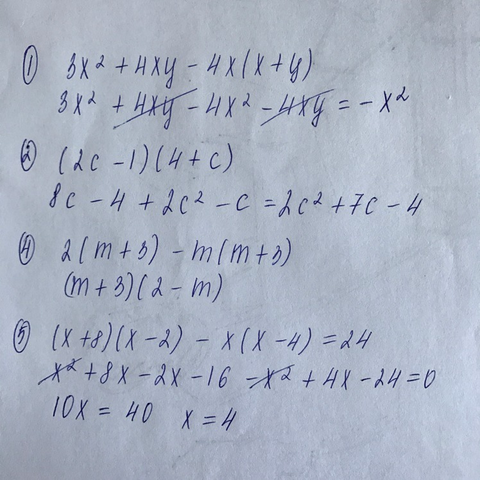 ① 3x² + 4xy - 4x(x+y)
3x² + 4xy - 4x² - 4xy = -x²
② (2c - 1)(4 + c)
8c - 4 + 2c² - c = 2c² + 7c - 4
④ 2(m+3) - m(m+3)
(m+3)(2-m)
⑤ (x+8)(x-2) - x(x-4) = 24
x² + 8x - 2x - 16 - x² + 4x - 24 = 0
10x = 40 x = 4